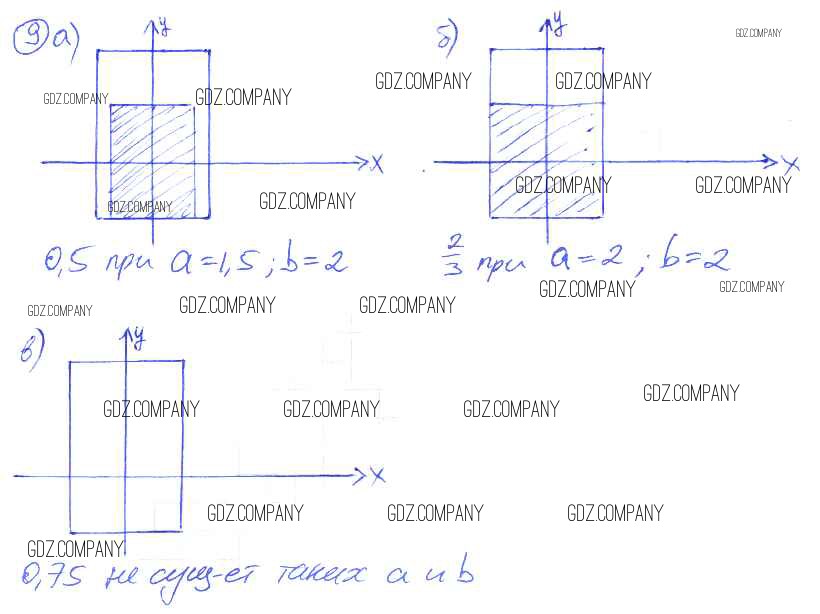 9 а) y
б) y
GDZ.COMPANY
GDZ.COMPANY
GDZ.COMPANY
GDZ.COMPANY
GDZ.COMPANY
x
x
GDZ.COMPANY
GDZ.COMPANY
GDZ.COMPANY
GDZ.COMPANY
0,5 при a=1,5; b=2
2/3 при a=2; b=2
GDZ.COMPANY
GDZ.COMPANY
GDZ.COMPANY
GDZ.COMPANY
GDZ.COMPANY
в) y
GDZ.COMPANY
GDZ.COMPANY
GDZ.COMPANY
GDZ.COMPANY
x
GDZ.COMPANY
GDZ.COMPANY
GDZ.COMPANY
GDZ.COMPANY
0,75 не сущ-ет таких a и b